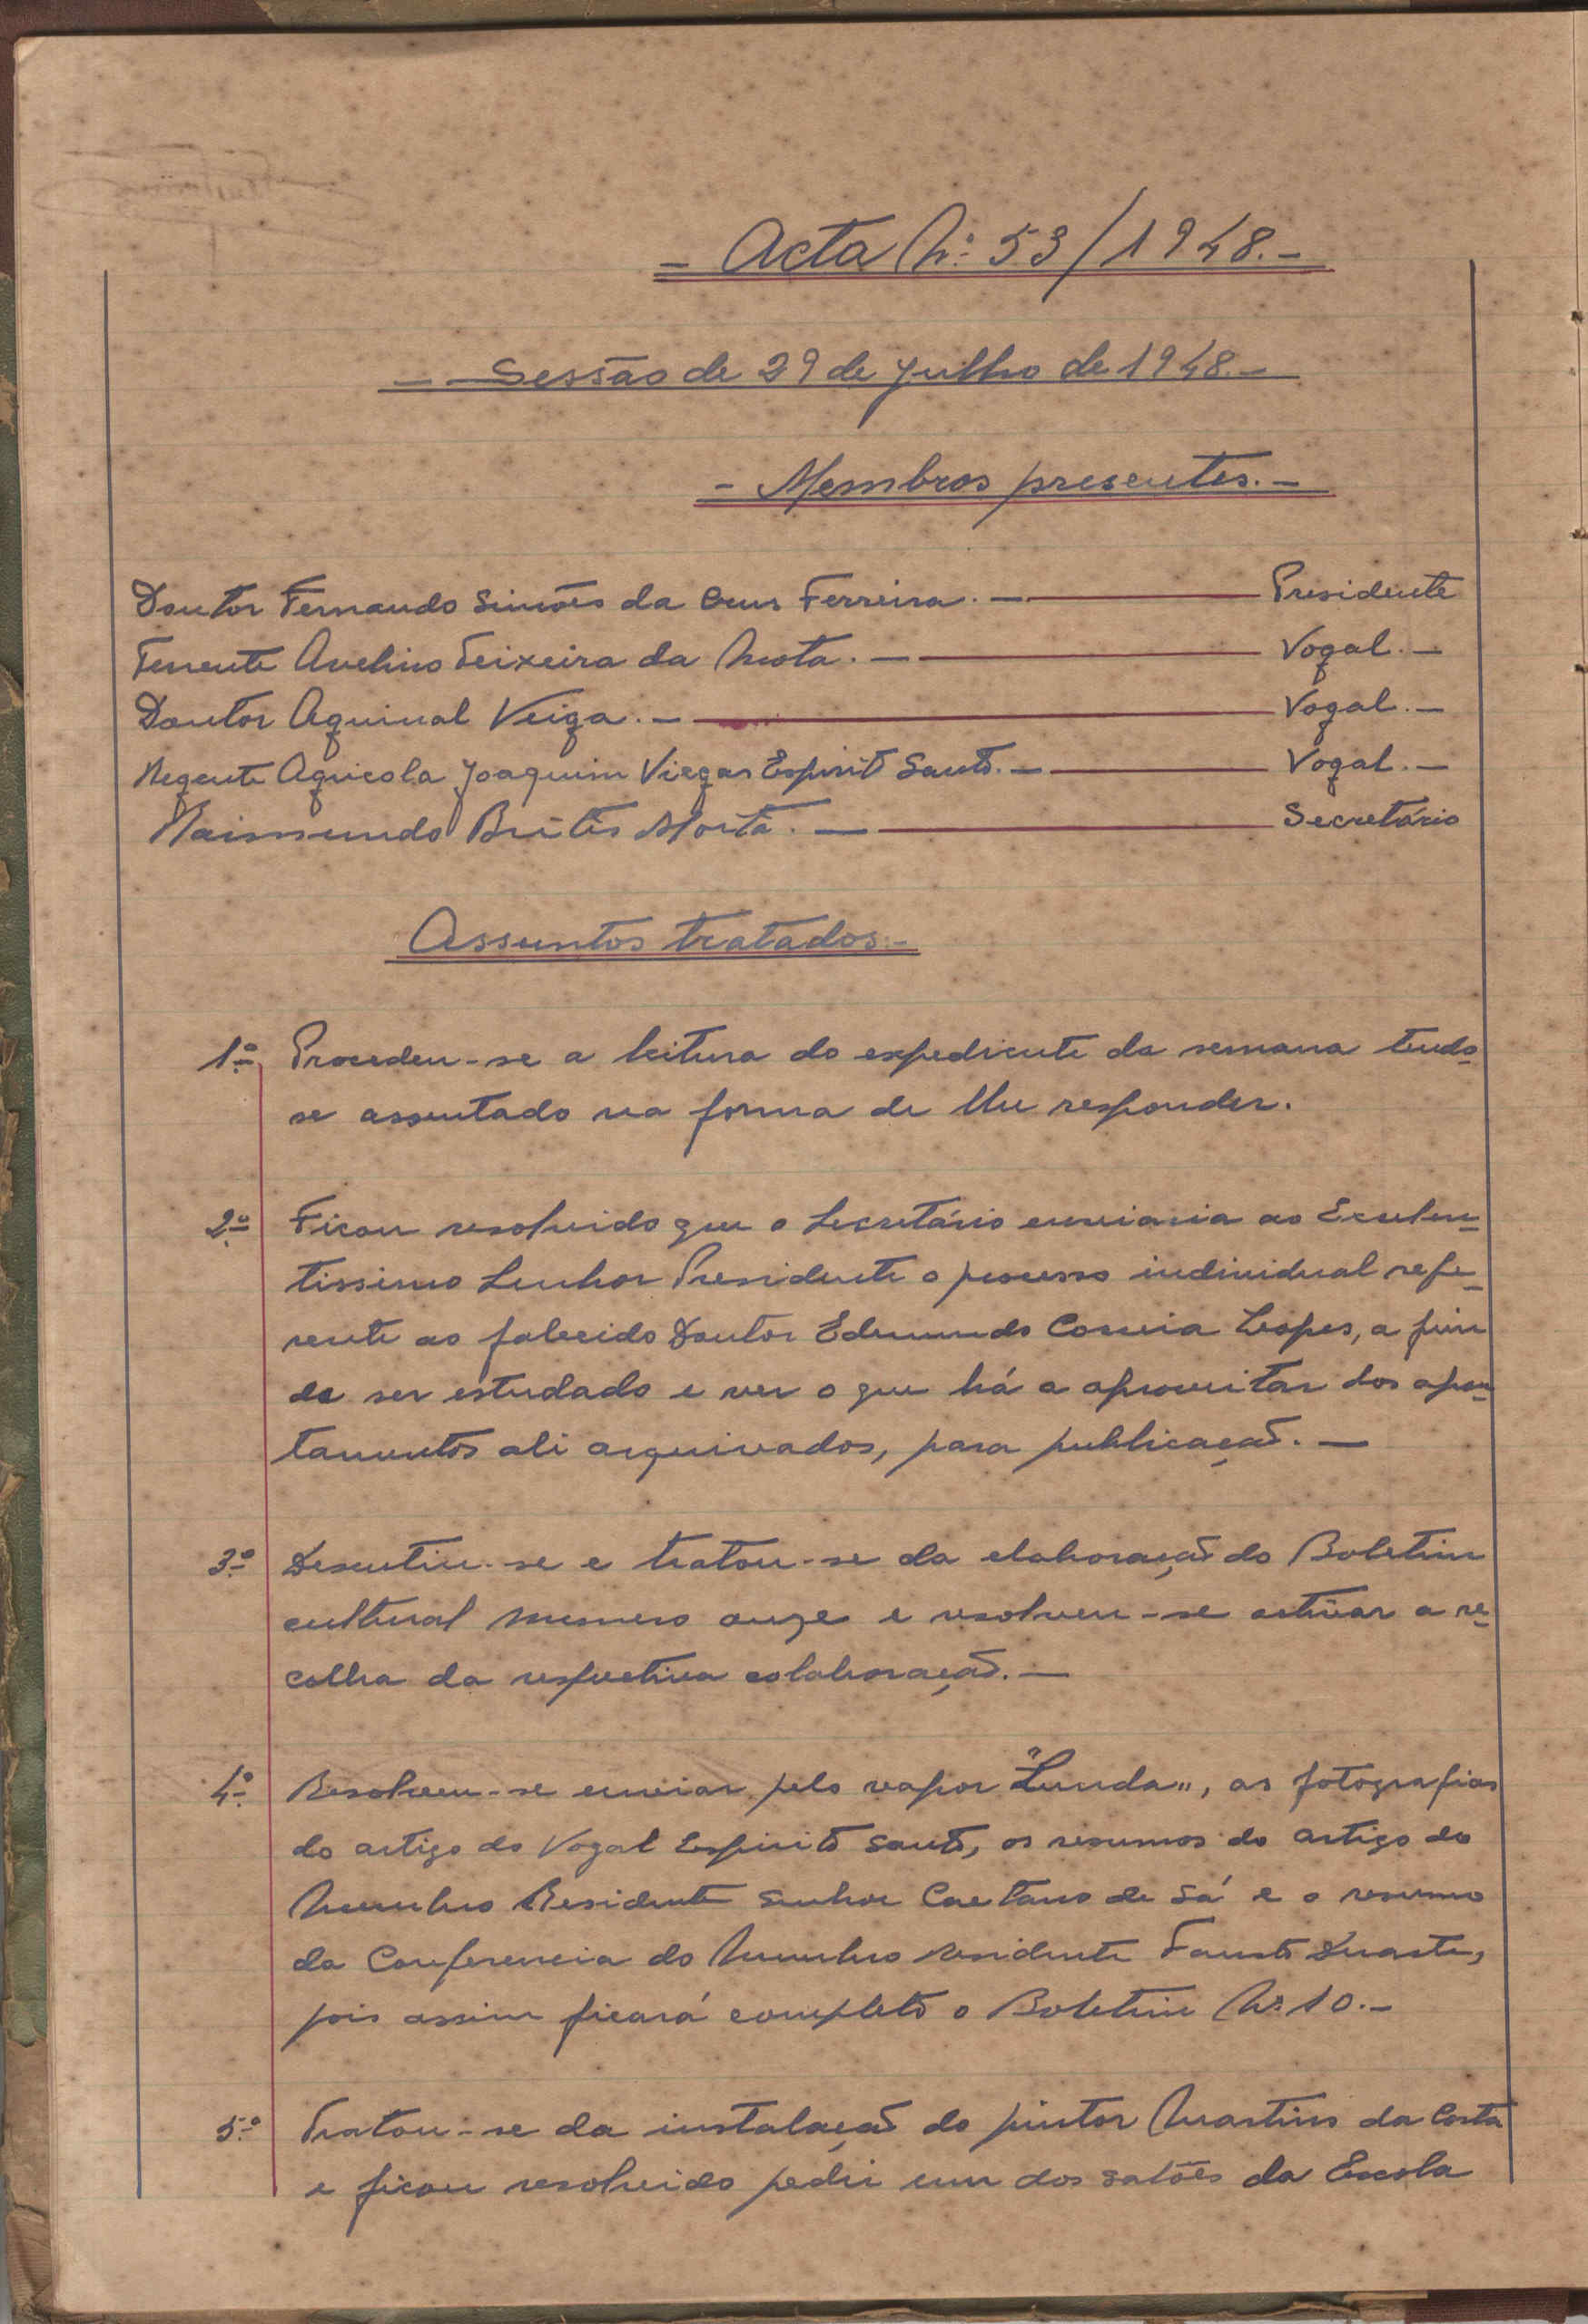 - Acta Nº 53/1948. -
- Sessão de 29 de Julho de 1948. -
- Membros presentes. -
Doutor Fernando Simões da Cruz Ferreira. — Presidente
Tenente Avelino Teixeira da Mota. — Vogal. -
Doutor Aguinal Veiga. — Vogal. -
Regente Agricola Joaquim Viegas Espirito Santo. — Vogal. -
Raimundo Brites Moita. — Secretário
Assuntos tratados. -
1º Procedeu-se a leitura do expediente da semana tendo-
se assentado na forma de lhe responder.
2º Ficou resolvido que o Secretário enviaria ao Excelen-
tissimo Senhor Presidente o processo individual refe-
rente ao falecido Doutor Edmundo Correia Lopes, a fim
de ser estudado e ver o que há a aproveitar dos apon-
tamentos ali arquivados, para publicação. —
3º Descutiu-se e tratou-se da elaboração do Boletim
cultural numero onze e resolveu-se activar a re-
colha da respectiva colaboração. —
4º Resolveu-se enviar pelo vapor "Lunda", as fotografias
do artigo do Vogal Espirito Santo, os resumos do artigo do
Membro Residente Senhor Caetano de Sá e o resumo
da Conferencia do Membro residente Fausto Duarte,
pois assim ficará completo o Boletim Nº 10. -
5º Tratou-se da instalação do pintor Martins da Costa
e ficou resolvido pedir um dos salões da Escola